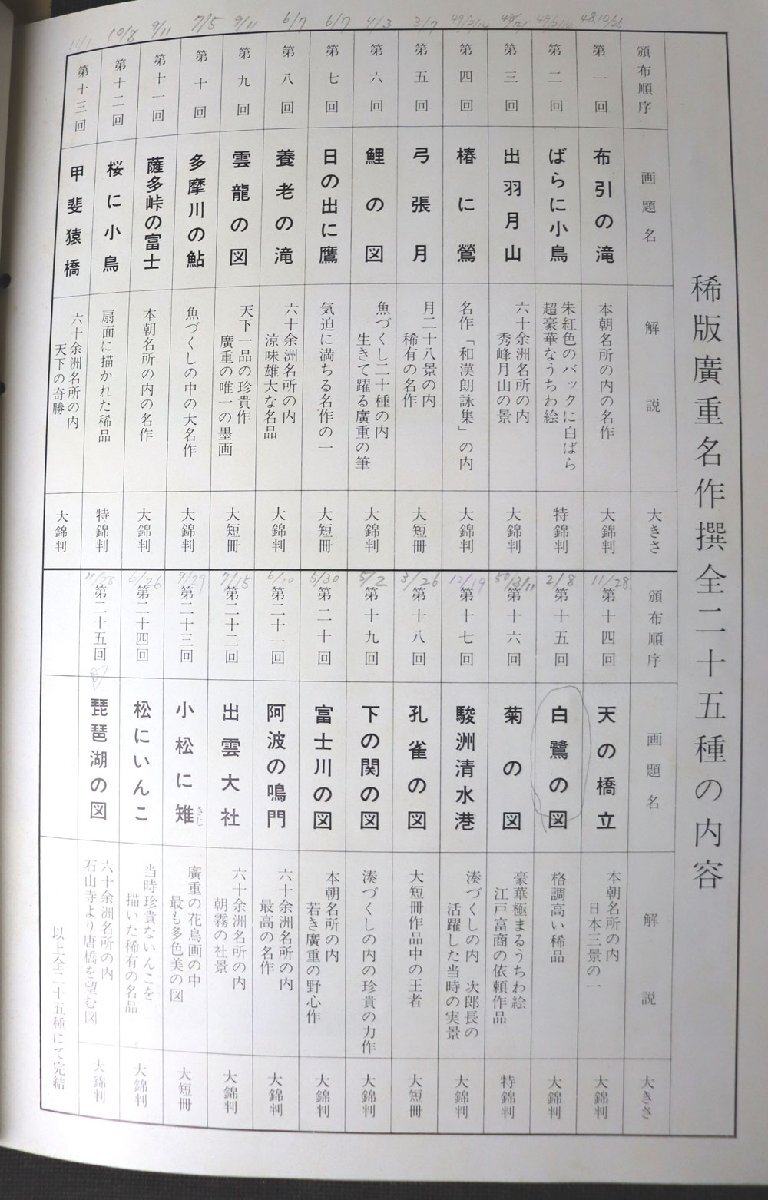 稀版廣重名作撰全二十五種の内容
頒布順序
画題名
解説
大きさ
48 10/26
第一回
布引の滝
本朝名所の内の名作
大錦判
第二回
ばらに小鳥
朱紅色のバックに白ばら
超豪華なうちわ絵
特錦判
第三回
出羽月山
六十余洲名所の内
秀峰月山の景
大錦判
第四回
椿に鶯
名作「和漢朗詠集」の内
大錦判
3/7
第五回
弓張月
月二十八景の内
稀有の名作
大短冊
4/3
第六回
鯉の図
魚づくし二十種の内
生きて躍る廣重の筆
大錦判
6/7
第七回
日の出に鷹
気迫に満ちる名作の一
大短冊
6/7
第八回
養老の滝
六十余洲名所の内
涼味雄大な名品
大錦判
9/11
第九回
雲龍の図
天下一品の珍貴作
廣重の唯一の墨画
大短冊
7/5
第十回
多摩川の鮎
魚づくしの中の大名作
大錦判
9/11
第十一回
薩多峠の富士
本朝名所の内の名作
大錦判
10/8
第十二回
桜に小鳥
扇面に描かれた稀品
特錦判
11/1
第十三回
甲斐猿橋
六十余洲名所の内
天下の奇勝
大錦判
頒布順序
画題名
解説
大きさ
11/28
第十四回
天の橋立
本朝名所の内
日本三景の一
大錦判
2/8
第十五回
白鷺の図
格調高い稀品
大錦判
第十六回
菊の図
豪華極まるうちわ絵
江戸富商の依頼作品
特錦判
12/19
第十七回
駿洲清水港
湊づくしの内 次郎長の
活躍した当時の実景
大錦判
3/26
第十八回
孔雀の図
大短冊作品中の王者
大短冊
5/2
第十九回
下の関の図
湊づくしの内の珍貴の力作
大錦判
5/30
第二十回
富士川の図
本朝名所の内
若き廣重の野心作
大錦判
6/20
第二十一回
阿波の鳴門
六十余洲名所の内
最高の名作
大錦判
7/15
第二十二回
出雲大社
六十余洲名所の内
朝霧の社景
大錦判
7/29
第二十三回
小松に雉
きじ
廣重の花鳥画の中
最も多色美の図
大短冊
6/26
第二十四回
松にいんこ
当時珍貴ないんこを
描いた稀有の名品
大錦判
第二十五回
琵琶湖の図
六十余洲名所の内
石山寺より唐橋を望む図
大錦判
以上全二十五種にて完結